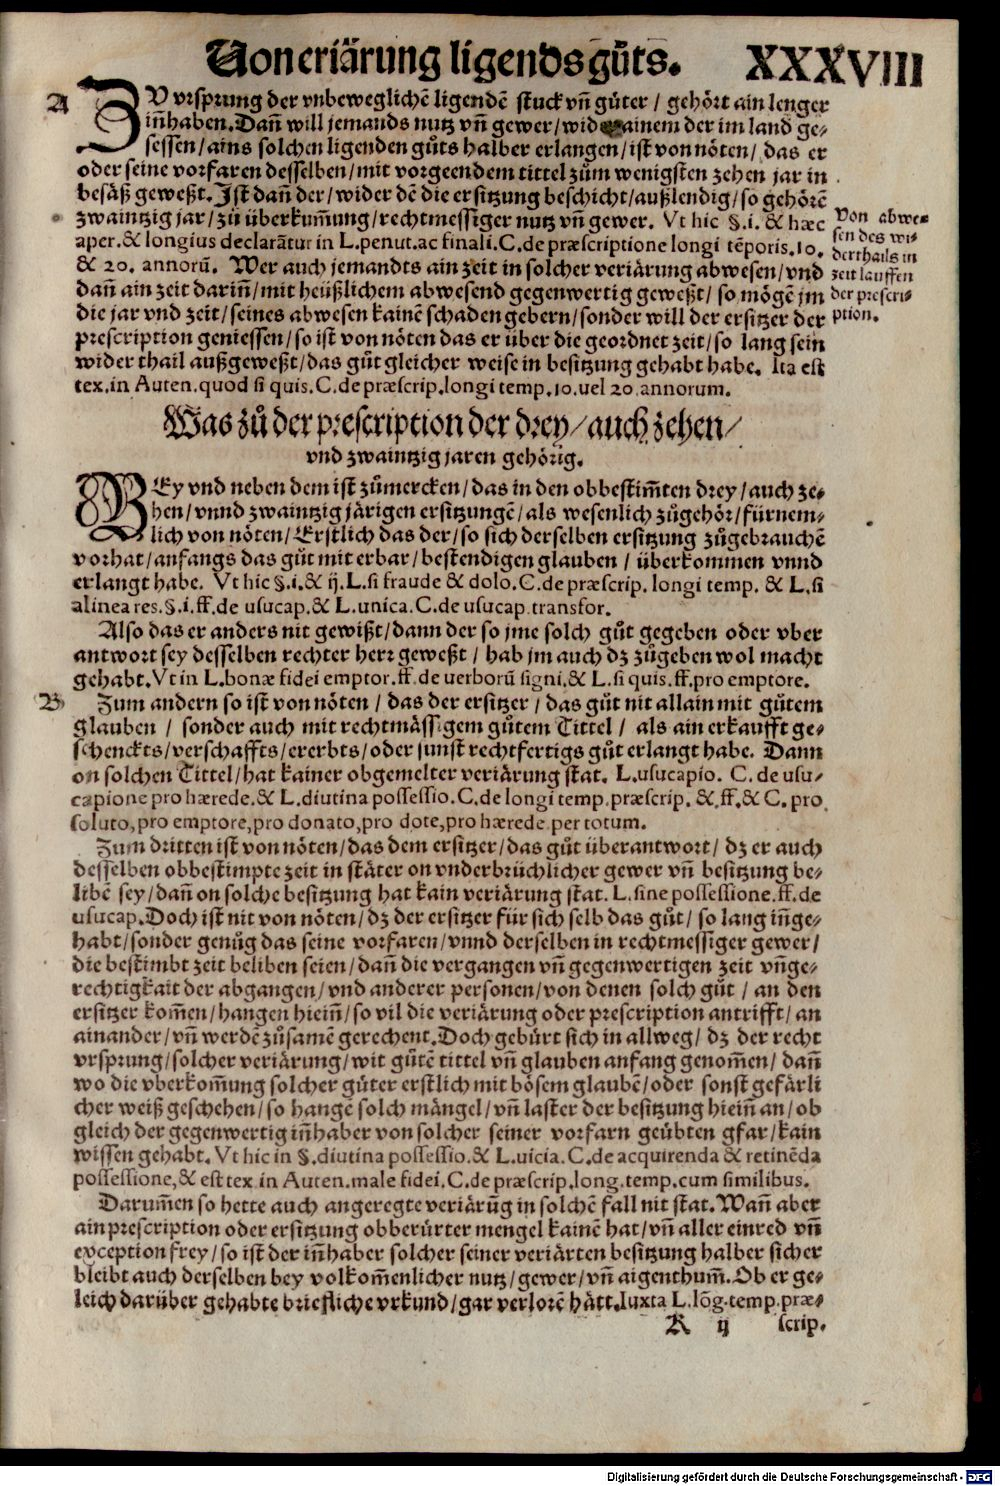 Von eriärung ligends guͦts. XXXVIII
A ZV vrsprung der vnbeweglichē ligendē stuck vn̄ guͤter / gehoͤrt ain lenger
inn̄haben. Dan̄ will jemands nutz vn̄ gewer / wider ainem der im land ge⸗
sessen / ains solchen ligenden guͦts halber erlangen / ist von noͤten / das er
oder seine vorfaren desselben / mit vorgeendem tittel zuͦm wenigsten zehen jar in
besaͤß geweßt. Jst dan̄ der / wider dē die ersitzung beschicht / außlendig / so gehoͤrē
zwaintzig jar / zuͦ überkum̄ung / rechtmessiger nutz vn̄ gewer. Vt hic §.i. & hæc
aper. & longius declarātur in L.penut.ac finali.C.de præscriptione longi tēporis.10.
& 20. annorū. Wer auch jemandts ain zeit in solcher veriärung abwesen / vnd
dan̄ ain zeit darin̄ / mit heüßlichem abwesend gegenwertig geweßt / so moͤgē jm
die jar vnd zeit / seines abwesen kainē schaden gebern / sonder will der ersitzer der
prescription geniessen / so ist von noͤten das er über die geordnet zeit / so lang sein
wider thail außgeweßt / das guͦt gleicher weise in besitzung gehabt habe. Ita est
tex.in Auten.quod si quis.C.de præscrip.longi temp.10.vel 20.annorum.
Von abwe⸗
sen des wi⸗
derthails in
zeit lauffen
der prescri⸗
ption.
Was zuͦ der prescription der drey / auch zehen /
vnd zwaintzig jaren gehoͤrig.
BEy vnd neben dem ist zuͦmercken / das in den obbestim̄ten drey / auch ze⸗
hen / vnnd zwaintzig jaͤrigen ersitzungē / als wesenlich zuͦgehoͤr / fürnem⸗
lich von noͤten / Erstlich das der / so sich derselben ersitzung zuͦgebrauchē
vorhat / anfangs das guͦt mit erbar / bestendigen glauben / überkommen vnnd
erlangt habe. Vt hic §.i.& ij.L.si fraude & dolo.C.de præscrip. longi temp. & L.si
alinea res.§.i.ff.de usucap.& L.unica.C.de usucap.transfor.
Also das er anders nit gewißt / dann der so jme solch guͦt gegeben oder vber
antwort sey desselben rechter herr geweßt / hab jm auch dz zuͦgeben wol macht
gehabt. Vt in L.bonæ fidei emptor.ff.de uerborū signi.& L.si quis.ff.pro emptore.
B Zum andern so ist von noͤten / das der ersitzer / das guͦt nit allain mit guͦtem
glauben / sonder auch mit rechtmaͤssigem guͦtem Tittel / als ain erkaufft ge⸗
schenckts / verschaffts / ererbts / oder sunst rechtfertigs guͦt erlangt habe. Dann
on solchen Tittel / hat kainer obgemelter veriärung stat. L.usucapio. C.de usu⸗
capione pro hærede.& L.diutina possessio.C.de longi temp.præscrip. &.ff.& C. pro
soluto, pro emptore, pro donato, pro dote, pro hærede per totum.
Zum dritten ist von noͤten / das dem ersitzer / das guͦt überantwort / dz er auch
desselben obbestimpte zeit in staͤter on vnderbrüchlicher gewer vn̄ besitzung be⸗
libē sey / dan̄ on solche besitzung hat kain veriärung stat. L.sine possessione.ff.de
usucap. Doch ist nit von noͤten / dz der ersitzer für sich selb das guͦt / so lang in̄ge⸗
habt / sonder genuͦg das seine vorfaren / vnnd derselben in rechtmessiger gewer /
die bestimbt zeit beliben seien / dan̄ die vergangen vn̄ gegenwertigen zeit vn̄ge⸗
rechtigkait der abgangen / vnd anderer personen / von denen solch guͦt / an den
ersitzer kom̄en / hangen hiein̄ / so vil die veriärung oder prescription antrifft / an
ainander / vn̄ werdē zuͦsamē gerechent. Doch gebürt sich in allweg / dz der recht
vrsprung / solcher veriärung / mit guͦtē tittel vn̄ glauben anfang genom̄en / dan̄
wo die vberkom̄ung solcher guͤter erstlich mit boͤsem glaubē / oder sonst gefaͤrli
cher weiß geschehen / so hangē solch maͤngel / vn̄ laster der besitzung hiein̄ an / ob
gleich der gegenwertig in̄haber von solcher seiner vorfarn geuͤbten gfar / kain
wissen gehabt. Vt hic in §.diutina possessio.& L.uicia.C.de acquirenda & retinēda
possessione, & est tex.in Auten.male fidei.C.de præscrip.long.temp.cum similibus.
Darum̄en so hette auch angeregte veriärūg in solchē fall nit stat. Wan̄ aber
ain prescription oder ersitzung obberürter mengel kainē hat / vn̄ aller einred vn̄
exception frey / so ist der in̄haber solcher seiner veriärten besitzung halber sicher
bleibt auch derselben bey volkom̄enlicher nutz / gewer / vn̄ aigenthum̄. Ob er ge⸗
leich darüber gehabte briefliche vrkund / gar verlorē haͤtt. Iuxta L.lōg.temp.præ⸗
K ij scrip.
Digitalisierung gefördert durch die Deutsche Forschungsgemeinschaft - DFG